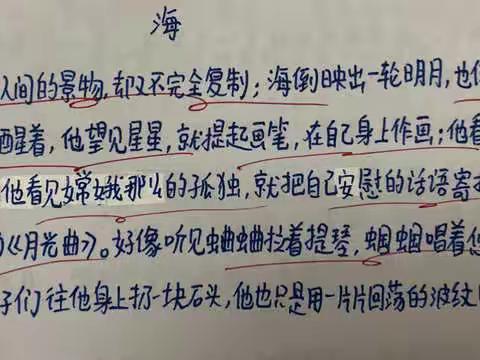 海
人间的景物,却又不完全复制；海倒映出一轮明月,也
醒着，他望见星星，就提起画笔，在自己身上作画；他看
他看见嫦娥那么的孤独，就把自己安慰的话语寄
《月光曲》。好像听见蛐蛐拉着提琴，蝈蝈唱着
子们往他身上扔一块石头,他也只是用一片片回荡的波纹